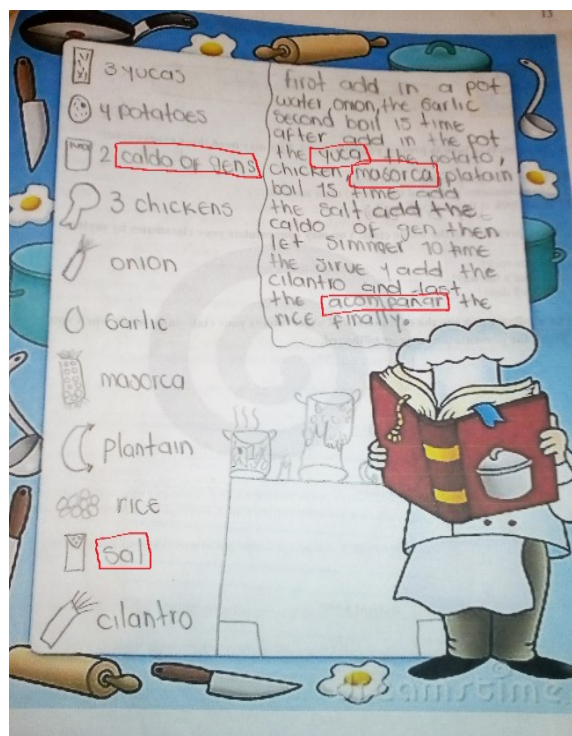 13
3 yucas
4 potatoes
2 caldo of gens
3 chickens
onion
Garlic
masorca
plantain
rice
sal
cilantro
first add in a pot
water, onion, the Garlic
second boil 15 time
after add in the pot
the yuca the potato,
chicken, masorca, platain
boil 15 time add
the salt add the
caldo of gen then
let simmer 10 time
the sirve y add the
cilantro and last
the acompañar the
rice finally.
dreamstime